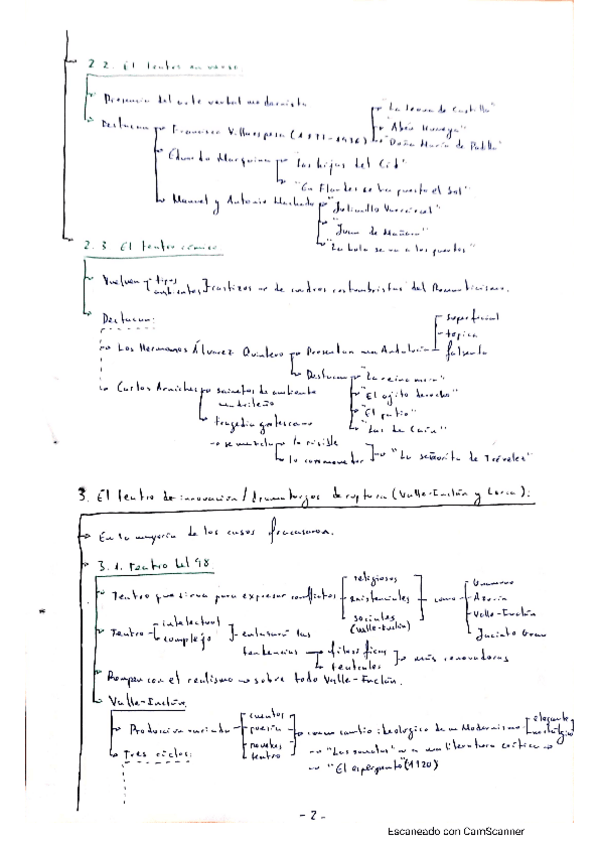 2.2. El teatro en verso:
Presencia del arte verbal modernista
Destacan Francisco Villaespesa (1877-1936) "La leona de Castilla"
"Abén Humeya"
"Doña María de Padilla"
Eduardo Marquina "Las hijas del Cid"
"En Flandes se ha puesto el sol"
Manuel y Antonio Machado "Julianillo Valcárcel"
"Juan de Mañara"
"La Lola se va a los puertos"
2.3 El teatro cómico:
Vuelven tipos ambientes castizos de cuadros costumbristas del Romanticismo.
Destacan:
Los Hermanos Álvarez Quintero Presentan una Andalucía superficial
tópica
falseada
Destacan "La reina mora"
"El ojito derecho"
"El patio"
"Las de Caín"
Carlos Arniches sainetes de ambiente madrileño
tragedia grotesca
se mezcla lo risible
lo conmovedor "La señorita de Trévelez"
3. El teatro de innovación / dramaturgos de ruptura (Valle-Inclán y Lorca):
En la mayoría de los casos fracasaron.
3.1. Teatro del 98
Teatro que sirva para expresar conflictos religiosos
existenciales
sociales (Valle-Inclán)
como Unamuno
Azorín
Valle-Inclán
Jacinto Grau
Teatro intelectual
complejo
las tendencias filosóficas
teatrales más renovadoras
Rompen con el realismo sobre todo Valle-Inclán.
Valle-Inclán
Producción variada cuentos
poesía
novelas
teatro
como cambio ideológico de un Modernismo elegante
nostálgico
"Las sonatas" a una literatura crítica
"El esperpento" (1920)
Tres ciclos:
- 2 -
Escaneado con CamScanner